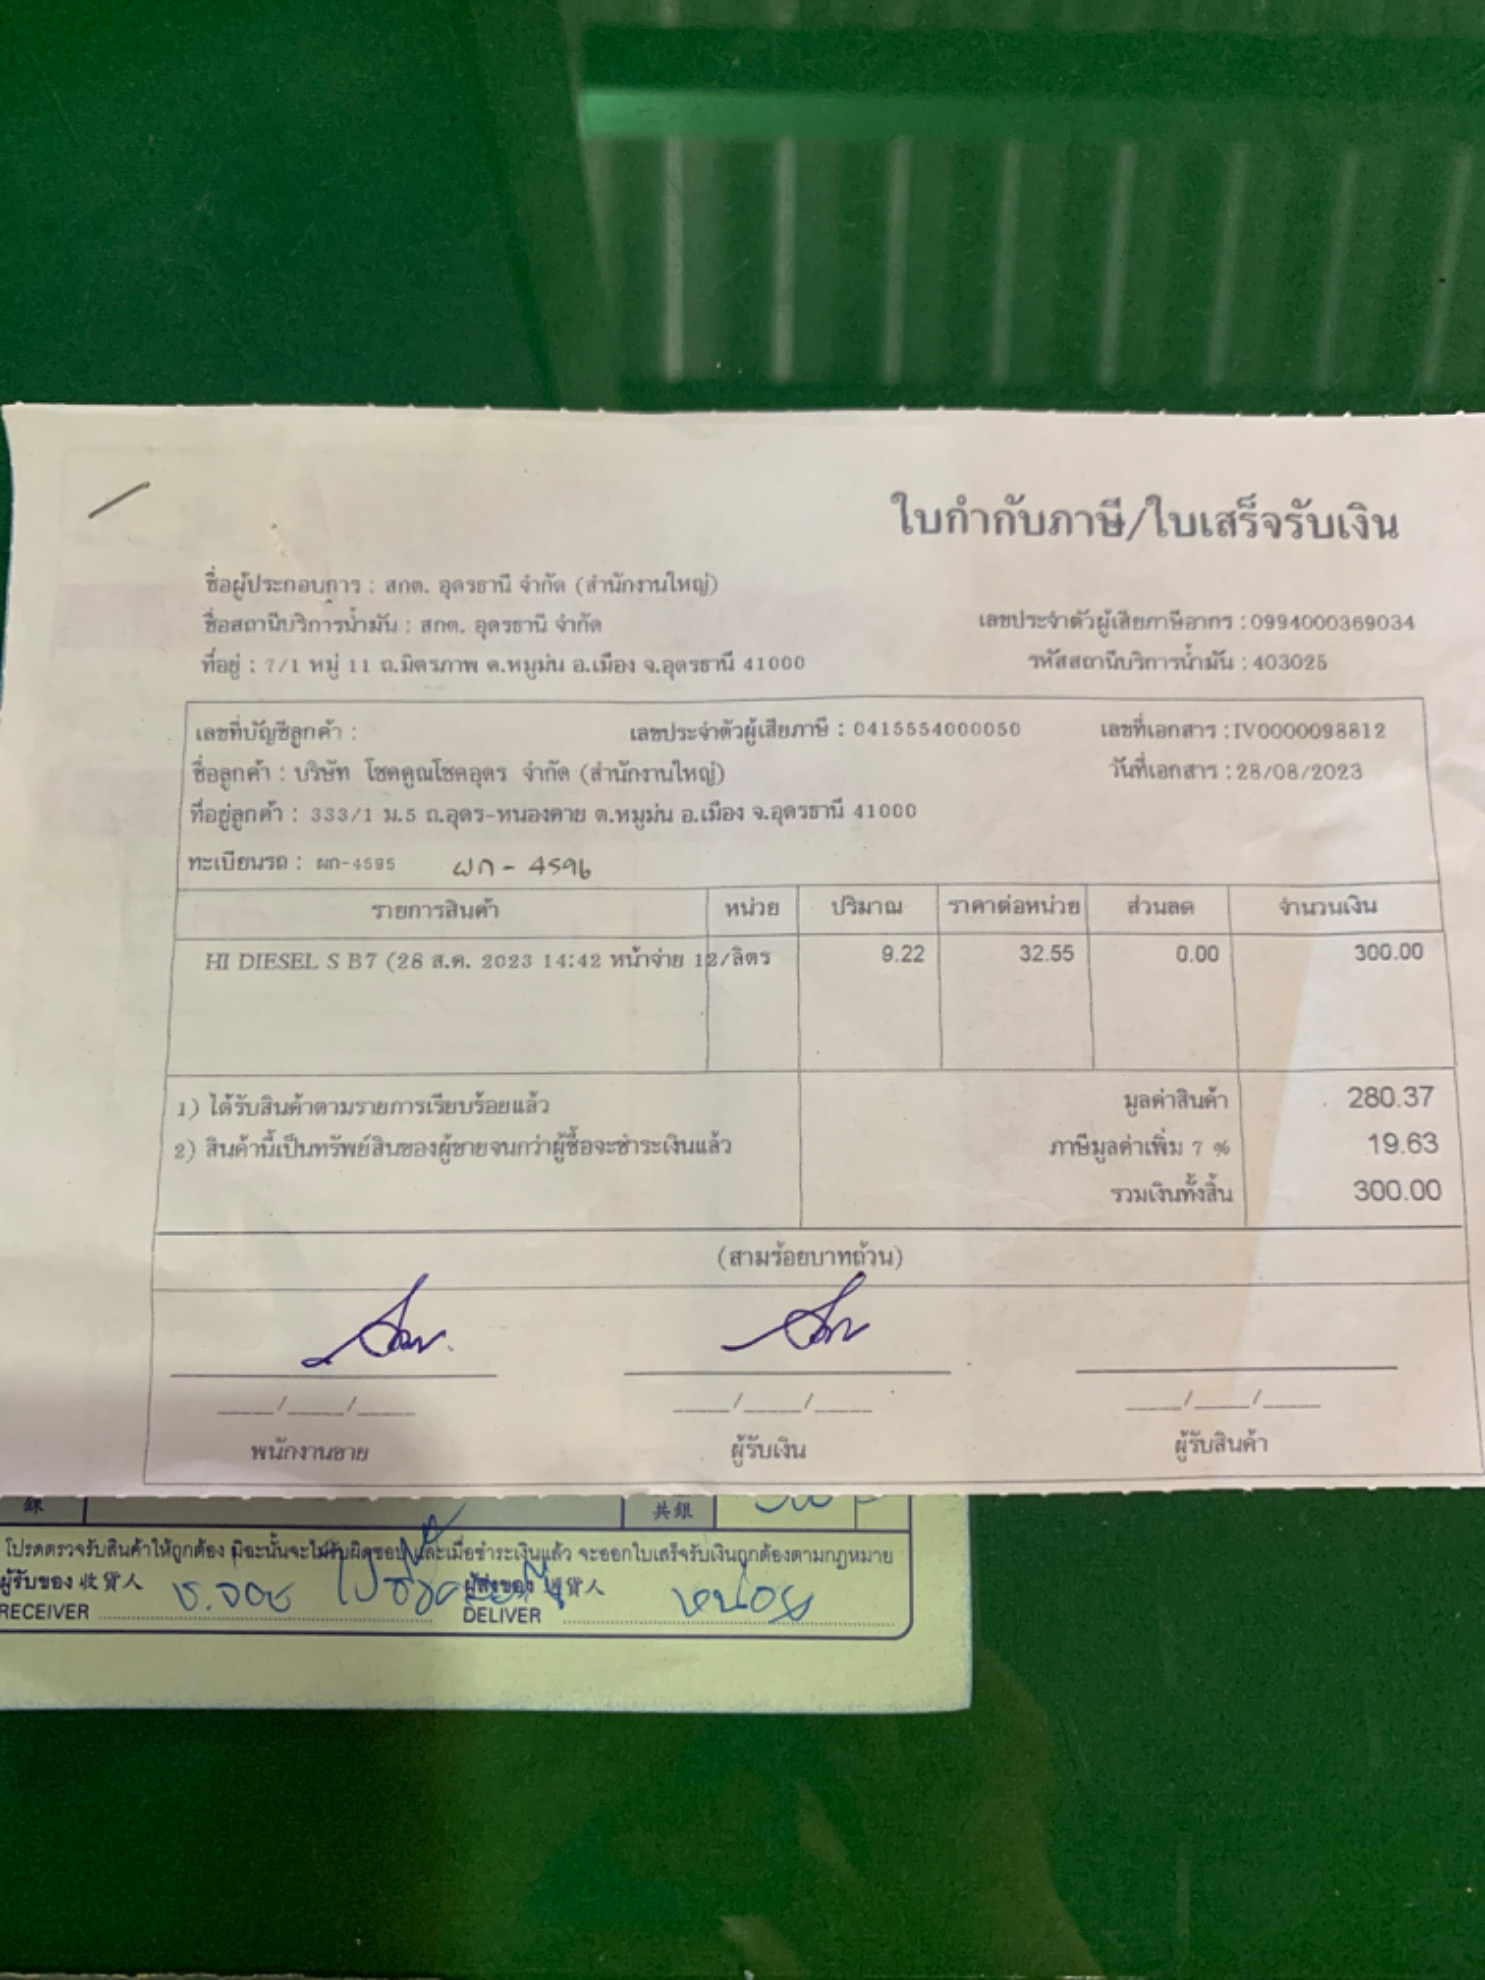 ใบกำกับภาษี/ใบเสร็จรับเงิน
ชื่อผู้ประกอบการ : สกต. อุดรธานี จำกัด (สำนักงานใหญ่)
ชื่อสถานีบริการน้ำมัน : สกต. อุดรธานี จำกัด เลขประจำตัวผู้เสียภาษีอากร : 0994000369034
ที่อยู่ : 7/1 หมู่ 11 ถ.มิตรภาพ ต.หมูม่น อ.เมือง จ.อุดรธานี 41000 รหัสสถานีบริการน้ำมัน : 403025
เลขที่บัญชีลูกค้า : เลขประจำตัวผู้เสียภาษี : 0415554000050 เลขที่เอกสาร : IV0000098812
ชื่อลูกค้า : บริษัท โชคคูณโชคอุดร จำกัด (สำนักงานใหญ่) วันที่เอกสาร : 28/08/2023
ที่อยู่ลูกค้า : 333/1 ม.5 ถ.อุดร-หนองคาย ต.หมูม่น อ.เมือง จ.อุดรธานี 41000
ทะเบียนรถ : ผก-4595 ผก-4596
รายการสินค้า หน่วย ปริมาณ ราคาต่อหน่วย ส่วนลด จำนวนเงิน
HI DIESEL S B7 (28 ส.ค. 2023 14:42 หน้าจ่าย 12/ลิตร 9.22 32.55 0.00 300.00
1) ได้รับสินค้าตามรายการเรียบร้อยแล้ว มูลค่าสินค้า 280.37
2) สินค้านี้เป็นทรัพย์สินของผู้ขายจนกว่าผู้ซื้อจะชำระเงินแล้ว ภาษีมูลค่าเพิ่ม 7 % 19.63
รวมเงินทั้งสิ้น 300.00
(สามร้อยบาทถ้วน)
____/____/____ ____/____/____ ____/____/____
พนักงานขาย ผู้รับเงิน ผู้รับสินค้า
共銀
โปรดตรวจรับสินค้าให้ถูกต้อง มิฉะนั้นจะไม่รับผิดชอบ และเมื่อชำระเงินแล้ว จะออกใบเสร็จรับเงินถูกต้องตามกฎหมาย
ผู้รับของ 收貨人 ผู้ส่งของ 貨人
RECEIVER DELIVER หน่อย